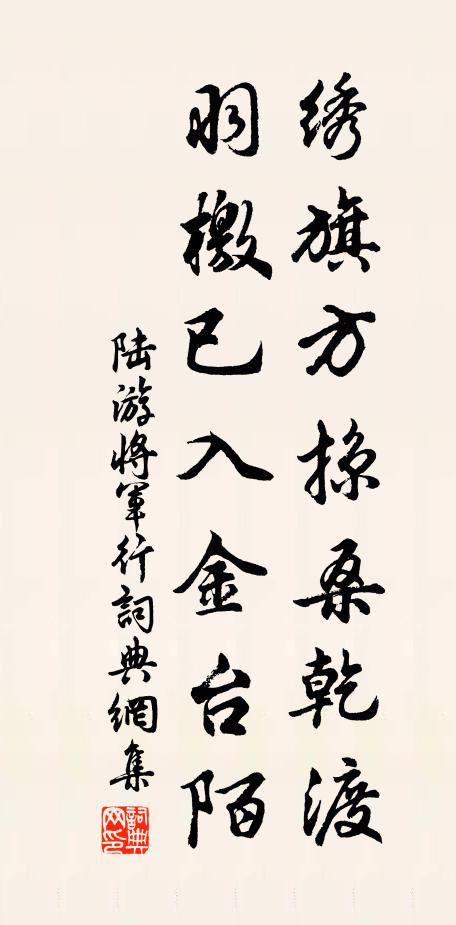 绣旗方掠桑乾渡
羽檄已入金台陌
陆游将軍行詞典網集
詞典网印